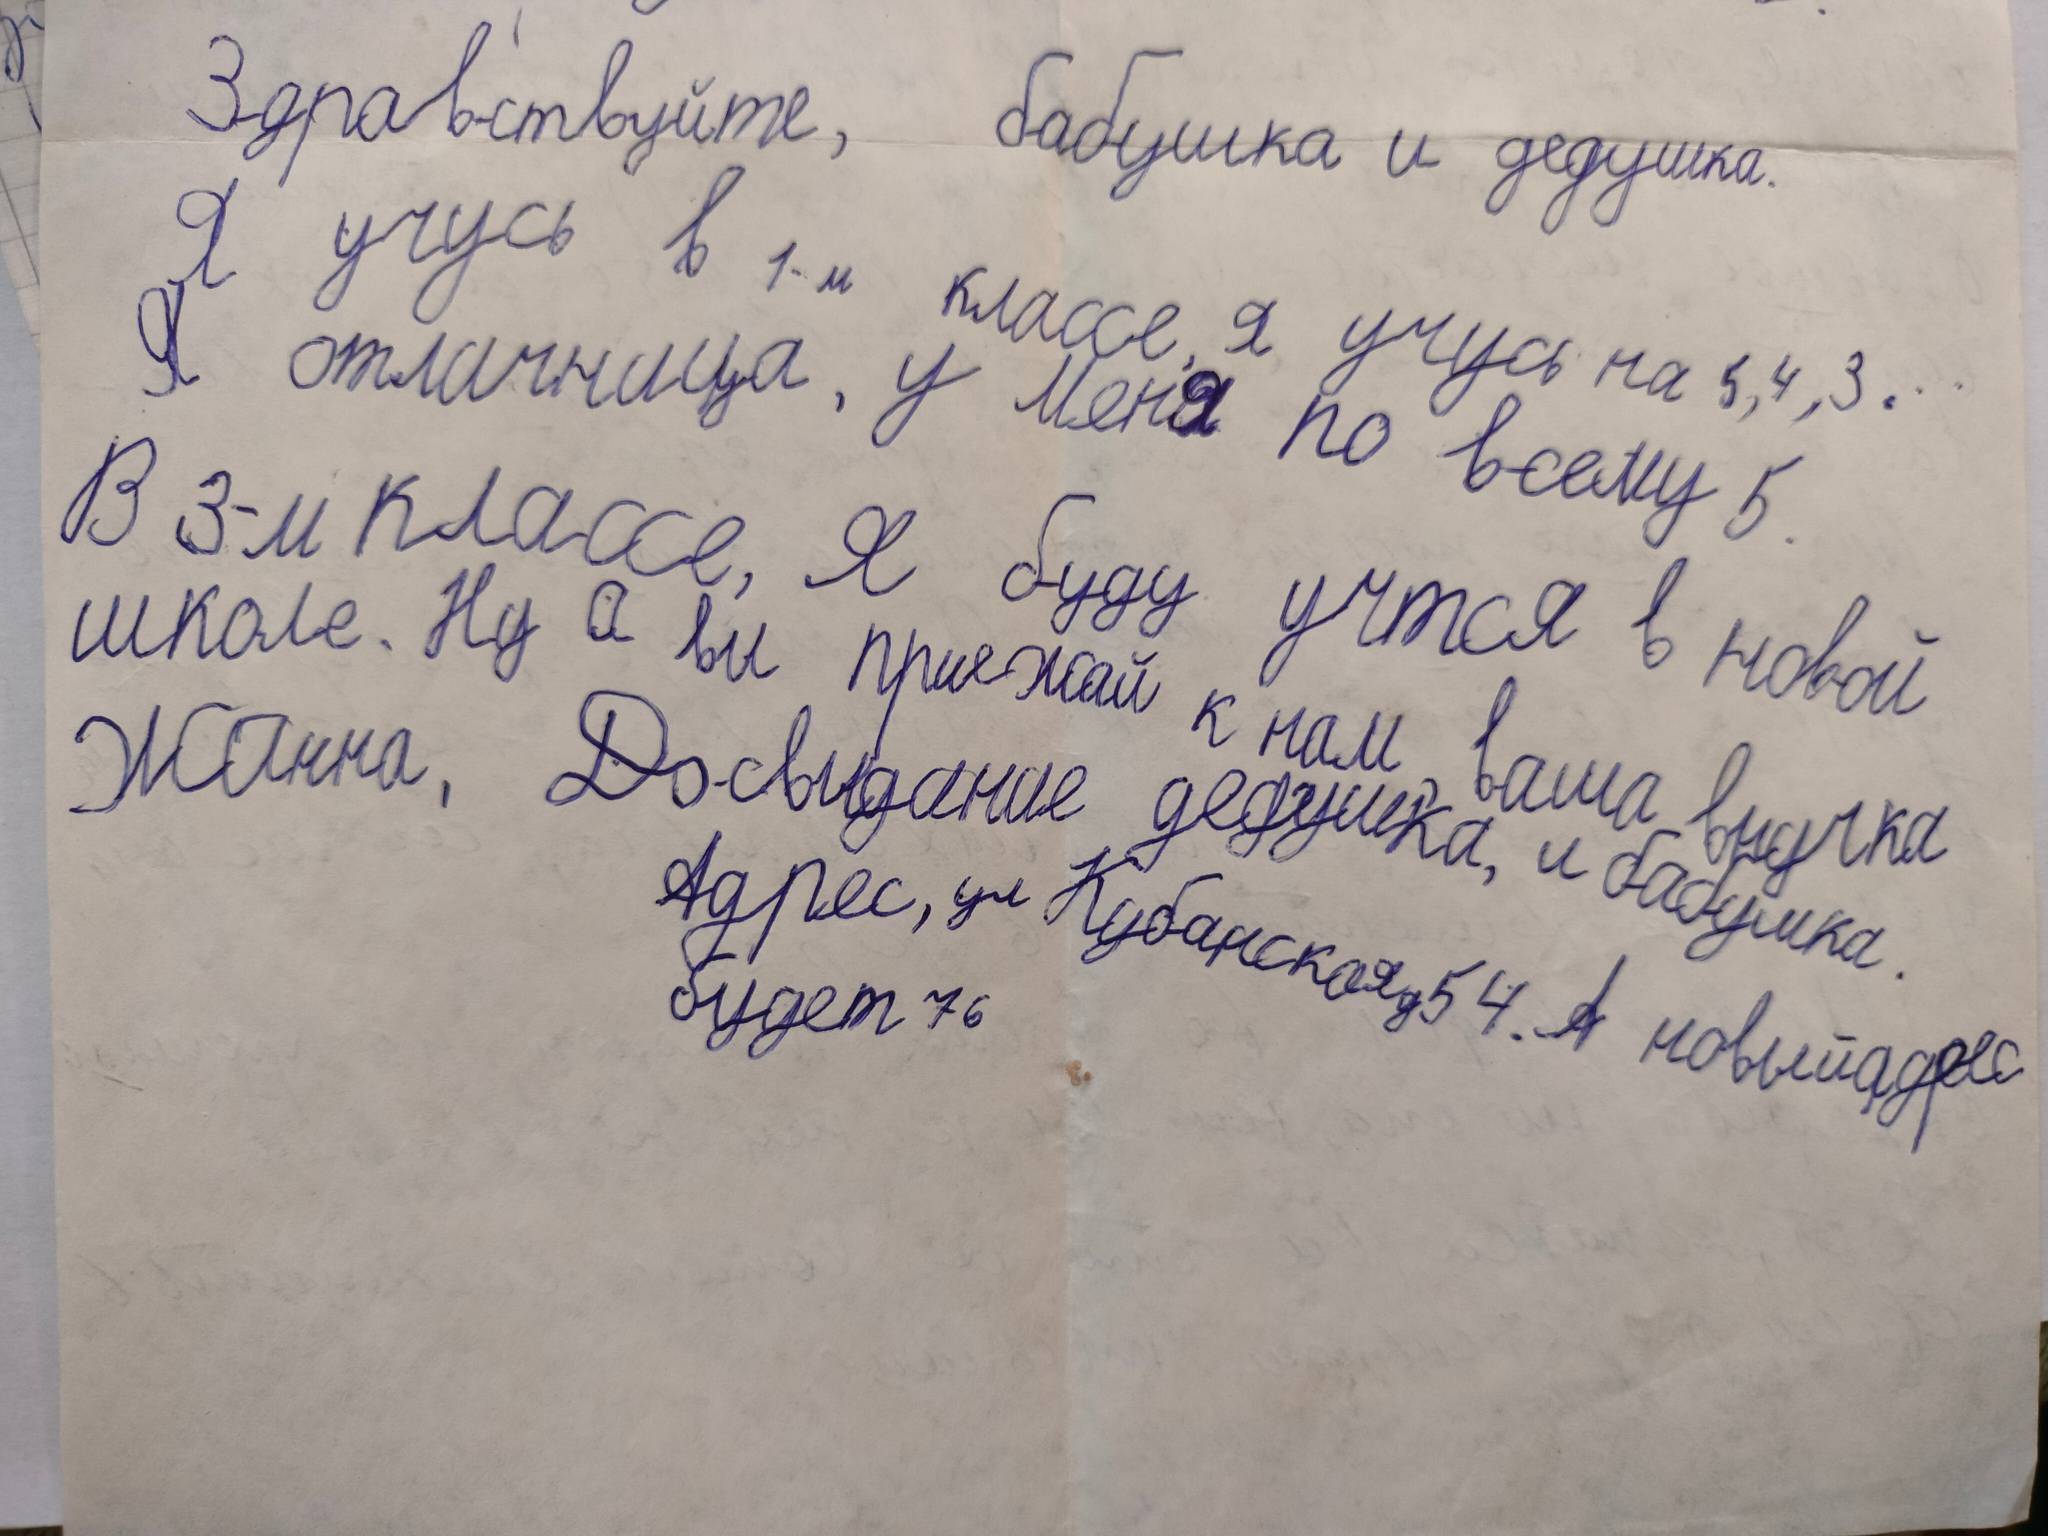 Здравствуйте, бабушка и дедушка.
Я учусь в 1-м классе, я учусь на 5,4,3...
Я отличница, у меня по всему 5.
В 3-м классе, Я буду учтся в новой
школе. Ну а вы приежай к нам, ваша внучка
Жанна, Досвидание дедушка, и бабушка.
Адрес, ул Кубанская д 54. А новый адрес
будет 76